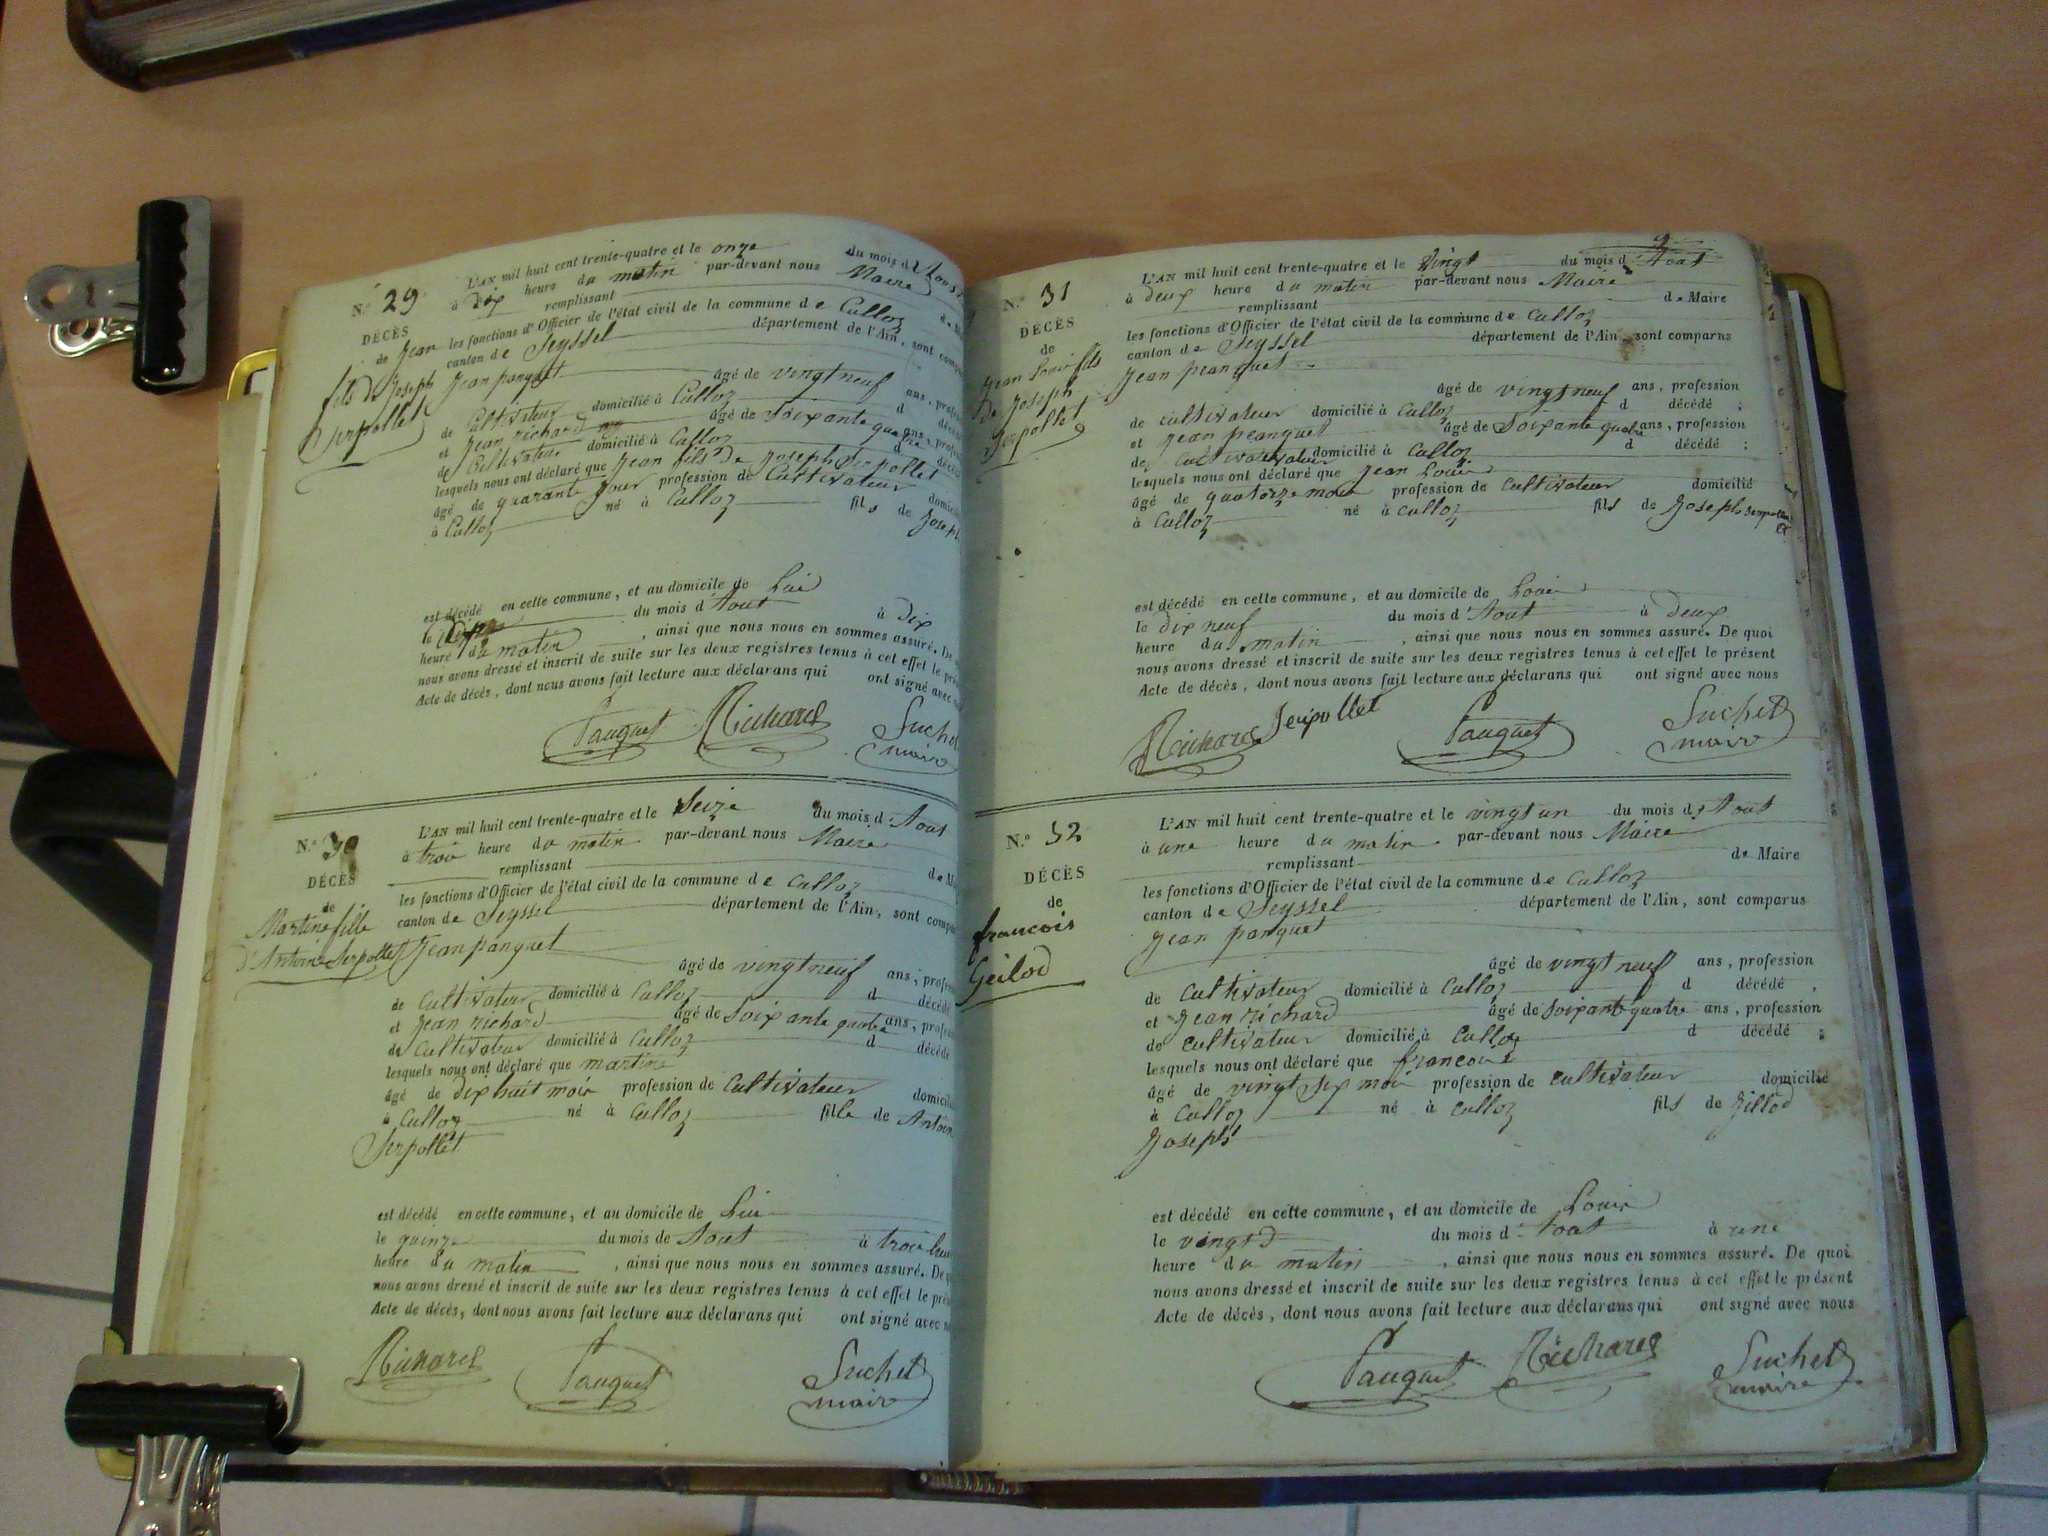 N.º 29
DÉCÈS
de Jean
fils de Joseph
Serpollet
L'AN mil huit cent trente-quatre et le onze du mois d'Aoust
à dix heure du matin par-devant nous Maire
remplissant
les fonctions d'Officier de l'état civil de la commune de Culloz
canton de Seyssel département de l'Ain, sont
Jean panquet
âgé de vingt neuf ans,
de Cultivateur domicilié à Culloz d
et Jean richard âgé de Soixante quatre ans,
de Cultivateur domicilié à Culloz d
lesquels nous ont déclaré que Jean fils De Joseph Serpollet
âgé de quarante jour profession de Cultivateur
à Culloz né à Culloz fils de Joseph
est décédé en cette commune, et au domicile de Lui
le du mois d'Aout à dix
heure du matin, ainsi que nous nous en sommes assuré. De
nous avons dressé et inscrit de suite sur les deux registres tenus à cet effet le
Acte de décès, dont nous avons fait lecture aux déclarans qui ont signé avec
Pauquet Richard Suchet
maire
N.º 30
DÉCÈS
de
Martine fille
d'Antoine Serpollet
L'AN mil huit cent trente-quatre et le Seize du mois d'Aout
à trois heure du matin par-devant nous Maire
remplissant de
les fonctions d'Officier de l'état civil de la commune de Culloz
canton de Seyssel département de l'Ain, sont
Jean panquet
âgé de vingt neuf ans,
de Cultivateur domicilié à Culloz d décédé
et Jean richard âgé de Soixante quatre ans,
de Cultivateur domicilié à Culloz d décédé
lesquels nous ont déclaré que martine
âgé de dix huit mois profession de Cultivateur
à Culloz né à Culloz fille de Antoine
Serpollet
est décédé en cette commune, et au domicile de Lui
le quinze du mois de Aout à trois
heure du matin, ainsi que nous nous en sommes assuré. De
nous avons dressé et inscrit de suite sur les deux registres tenus à cet effet le
Acte de décès, dont nous avons fait lecture aux déclarans qui ont signé avec
Richard Pauquet Suchet
maire
N.º 31
DÉCÈS
de
Jean Louis fils
De Joseph
Serpollet
L'AN mil huit cent trente-quatre et le Vingt du mois d'Aout
à deux heure du matin par-devant nous Maire
remplissant de Maire
les fonctions d'Officier de l'état civil de la commune de Culloz
canton de Seyssel département de l'Ain, sont comparus
Jean panquet
âgé de vingt neuf ans, profession
de cultivateur domicilié à Culloz d décédé ;
et Jean panquet âgé de Soixante quatre ans, profession
de Cultivateur domicilié à Culloz d décédé ;
lesquels nous ont déclaré que Jean Louis
âgé de quatorze mois profession de Cultivateur domicilié
à Culloz né à Culloz fils de Joseph Serpollet
est décédé en cette commune, et au domicile de Louis
le dix neuf du mois d'Aout à deux
heure du matin, ainsi que nous nous en sommes assuré. De quoi
nous avons dressé et inscrit de suite sur les deux registres tenus à cet effet le présent
Acte de décès, dont nous avons fait lecture aux déclarans qui ont signé avec nous
Richard Serpollet Pauquet Suchet
maire
N.º 32
DÉCÈS
de
francois
Geilod
L'AN mil huit cent trente-quatre et le vingt un du mois d'Aout
à une heure du matin par-devant nous Maire
remplissant de Maire
les fonctions d'Officier de l'état civil de la commune de Culloz
canton de Seyssel département de l'Ain, sont comparus
Jean panquet
âgé de vingt neuf ans, profession
de Cultivateur domicilié à Culloz d décédé ;
et Jean richard âgé de soixante quatre ans, profession
de Cultivateur domicilié à Culloz d décédé ;
lesquels nous ont déclaré que francois
âgé de vingt six mois profession de Cultivateur domicilié
à Culloz né à Culloz fils de Zillod
Joseph
est décédé en cette commune, et au domicile de Louis
le vingt du mois d'Aout à une
heure du matin, ainsi que nous nous en sommes assuré. De quoi
nous avons dressé et inscrit de suite sur les deux registres tenus à cet effet le présent
Acte de décès, dont nous avons fait lecture aux déclarans qui ont signé avec nous
Pauquet Richard Suchet
maire